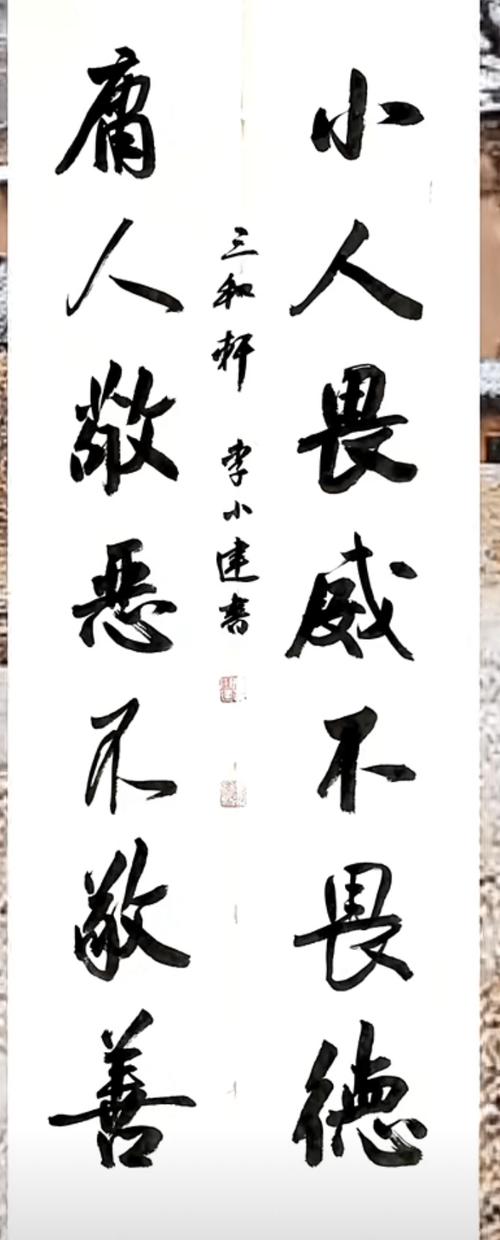 小人畏威不畏德
庸人敬恶不敬善
三和轩 李小建书